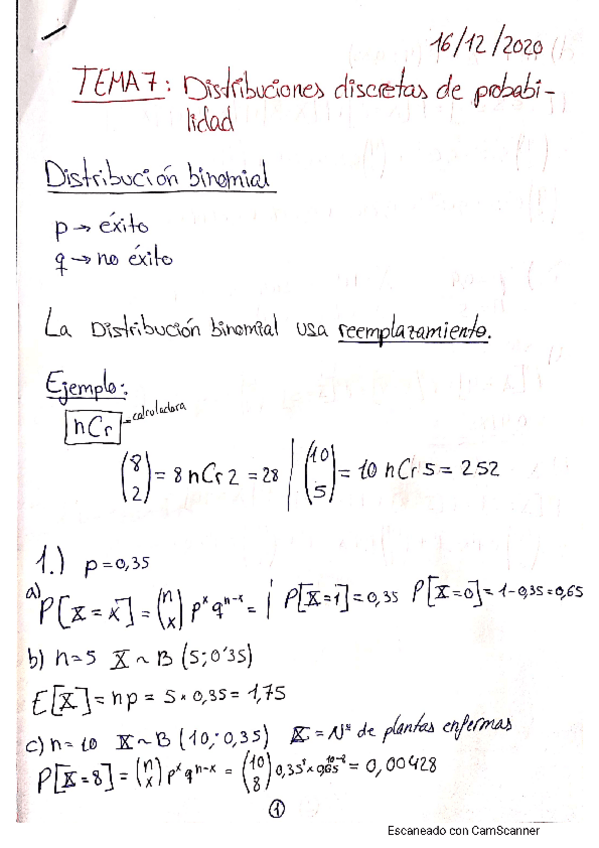 16/12/2020
TEMA 7: Distribuciones discretas de probabi-
lidad
Distribución binomial
p → éxito
q → no éxito
La Distribución binomial usa reemplazamiento.
Ejemplo:
nCr = calculadora
(8 2) = 8 nCr 2 = 28 | (10 5) = 10 nCr 5 = 252
1.) p = 0,35
a) P[X = x] = (n x) p^x q^n-x = ¡ P[X=1] = 0,35 P[X=0] = 1-0,35 = 0,65
b) n=5 X ~ B (5; 0'35)
E[X] = np = 5 * 0,35 = 1,75
c) n = 10 X ~ B (10; 0,35) X = Nº de plantas enfermas
P[X=8] = (n x) p^x q^n-x = (10 8) 0,35^8 * 0,65^10-8 = 0,00428
1
Escaneado con CamScanner